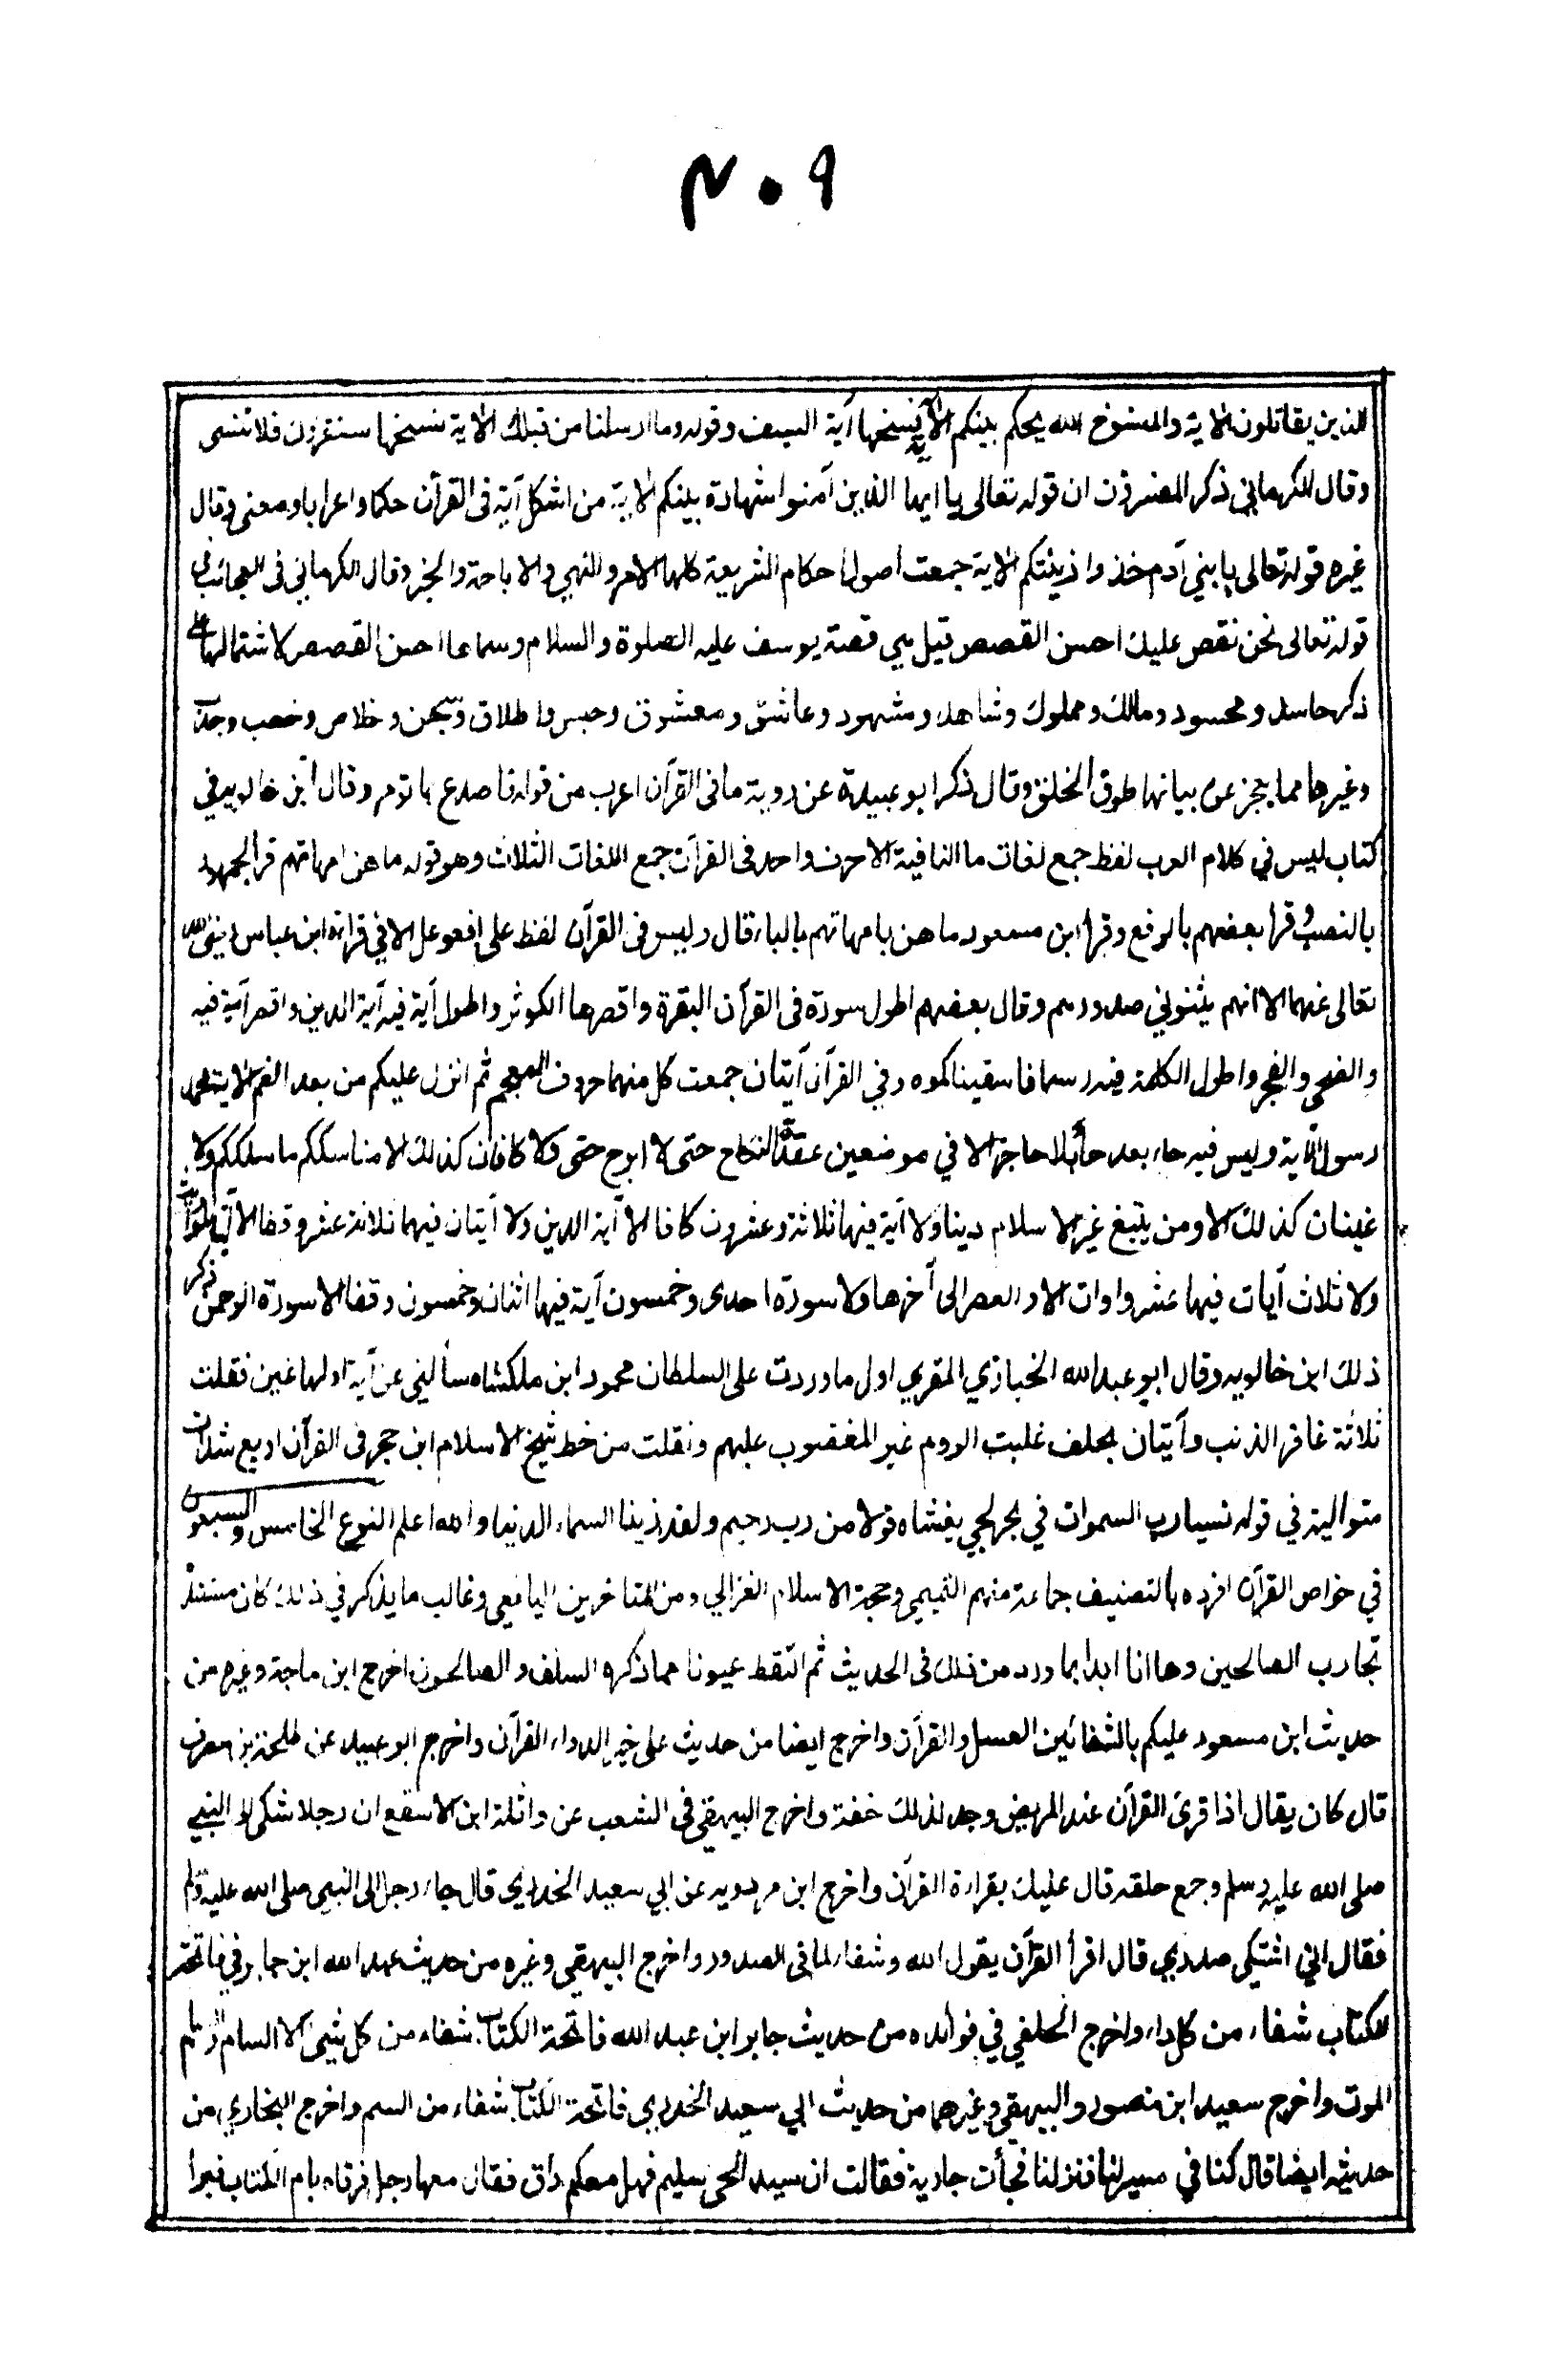 ٤٠٩
الذين يقاتلون الاية والمنسوخ الله يحكم بينكم الآية نسخها آية السيف وقوله وما ارسلنا من قبلك الاية نسخها سنقرئك فلا تنسى
وقال الكرماني ذكر المفسرون ان قوله تعالى يا ايها الذين آمنوا شهادة بينكم الاية من اشكل آية فى القرآن حكما واعرابا ومعنى وقال
غيره قوله تعالى يا بني آدم خذوا زينتكم الاية جمعت اصول احكام الشريعة كلها الامر والنهي والاباحة والخبر وقال الكرماني فى العجائب في
قوله تعالى نحن نقص عليك احسن القصص قيل هي قصة يوسف عليه الصلوة والسلام وسماها احسن القصص لاشتمالها على
ذكر حاسد ومحسود ومالك ومملوك وشاهد ومشهود وعاشق ومعشوق وحبس واطلاق وسجن وخلاص وخصب وجدب
وغيرها مما يعجز عن بيانها طوق الخلق وقال ذكر ابو عبيدة عن روبة ما فى القرآن اعرب من قوله فاصدع بما تؤمر وقال ابن خالويه في
كتاب ليس في كلام العرب لفظ جمع لغات ما النافية الا حرف واحد فى القرآن جمع اللغات الثلاث وهو قوله ما هن امهاتهم قرأ الجمهور
بالنصب وقرأ بعضهم بالرفع وقرأ ابن مسعود ما هن بامهاتهم بالباء قال وليس فى القرآن لفظ على افعوعل الا في قراءة ابن عباس رضي الله
تعالى عنهما الا انهم يثنوني صدورهم وقال بعضهم اطول سورة فى القرآن البقرة واقصرها الكوثر واطول آية فيه آية الدين واقصر آية فيه
والضحى والفجر واطول الكلمة فيه رسما فاسقيناكموه وفي القرآن آيتان جمعت كل منهما حروف المعجم ثم انزل عليكم من بعد الغم الاية محمد
رسول الله الآية وليس فيه حاء بعد حاء بلا حاجز الا في موضعين عقدة النكاح حتى لا ابرح حتى ولا كافان كذلك الا مناسككم ما سلككم ولا
غينان كذلك الا ومن يبتغ غير الاسلام دينا ولا آية فيها ثلاثة وعشرون كافا الا آية الدين ولا آيتان فيهما ثلاثة عشر وقفا الا آيتا المواريث
ولا ثلاث آيات فيها عشر واوات الا والعصر الى آخرها ولا سورة احدى وخمسون آية فيها اثنان وخمسون وقفا الا سورة الرحمن ذكر
ذلك ابن خالويه وقال ابو عبد الله الخبازي المقري اول ما وردت على السلطان محمود ابن ملكشاه سألني عن آية اولها غين فقلت
ثلاثة غافر الذنب وآيتان بخلف غلبت الروم غير المغضوب عليهم ونقلت من خط شيخ الاسلام ابن حجر فى القرآن اربع شدات
متوالية في قوله نسيا رب السموات في بحر لجي يغشاه قولا من رب رحيم ولقد زينا السماء الدنيا والله اعلم النوع الخامس والسبعون
في خواص القرآن افرده بالتصنيف جماعة منهم التميمي وحجة الاسلام الغزالي ومن المتاخرين اليافعي وغالب ما يذكر في ذلك كان مستنده
تجارب الصالحين وها انا ابدا بما ورد من ذلك فى الحديث ثم التقط عيونا مما ذكره السلف والصالحون اخرج ابن ماجة وغيره من
حديث ابن مسعود عليكم بالشفائين العسل والقرآن واخرج ايضا من حديث على خير الدواء القرآن واخرج ابو عبيد عن طلحة بن مصرف
قال كان يقال اذا قرئ القرآن عند المريض وجد لذلك خفة واخرج البيهقي فى الشعب عن واثلة ابن الاسقع ان رجلا شكى الى النبي
صلى الله عليه وسلم وجع حلقه قال عليك بقراءة القرآن واخرج ابن مردويه عن ابي سعيد الخدري قال جاء رجل الى النبي صلى الله عليه وسلم
فقال اني اشتكي صدري قال اقرأ القرآن يقول الله وشفاء لما فى الصدور واخرج البيهقي وغيره من حديث عبد الله ابن جابر في فاتحة
الكتاب شفاء من كل داء واخرج الخلعي في فوائده من حديث جابر ابن عبد الله فاتحة الكتاب شفاء من كل شيئ الا السام والسام
الموت واخرج سعيد ابن منصور والبيهقي وغيرهما من حديث ابي سعيد الخدري فاتحة الكتاب شفاء من السم واخرج البخاري من
حديثه ايضا قال كنا في مسير لنا فنزلنا فجأت جارية فقالت ان سيد الحى سليم فهل معكم راق فقال معها رجل فرقاه بام الكتاب فبرأ